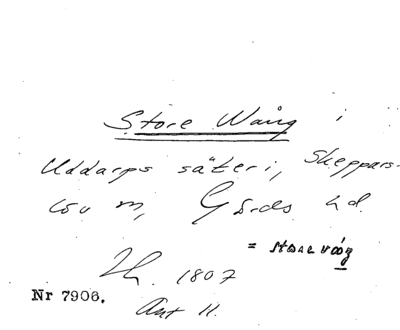 Store Wång i
Uddarps säteri, Skeppars-
löv m, Gärds hd.
= store våŋ
1807
Nr 7906.
Akt 11.